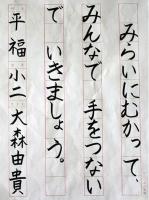 みらいにむかって、
みんなで手をつない
でいきましょう。
平福小二 大森由貴